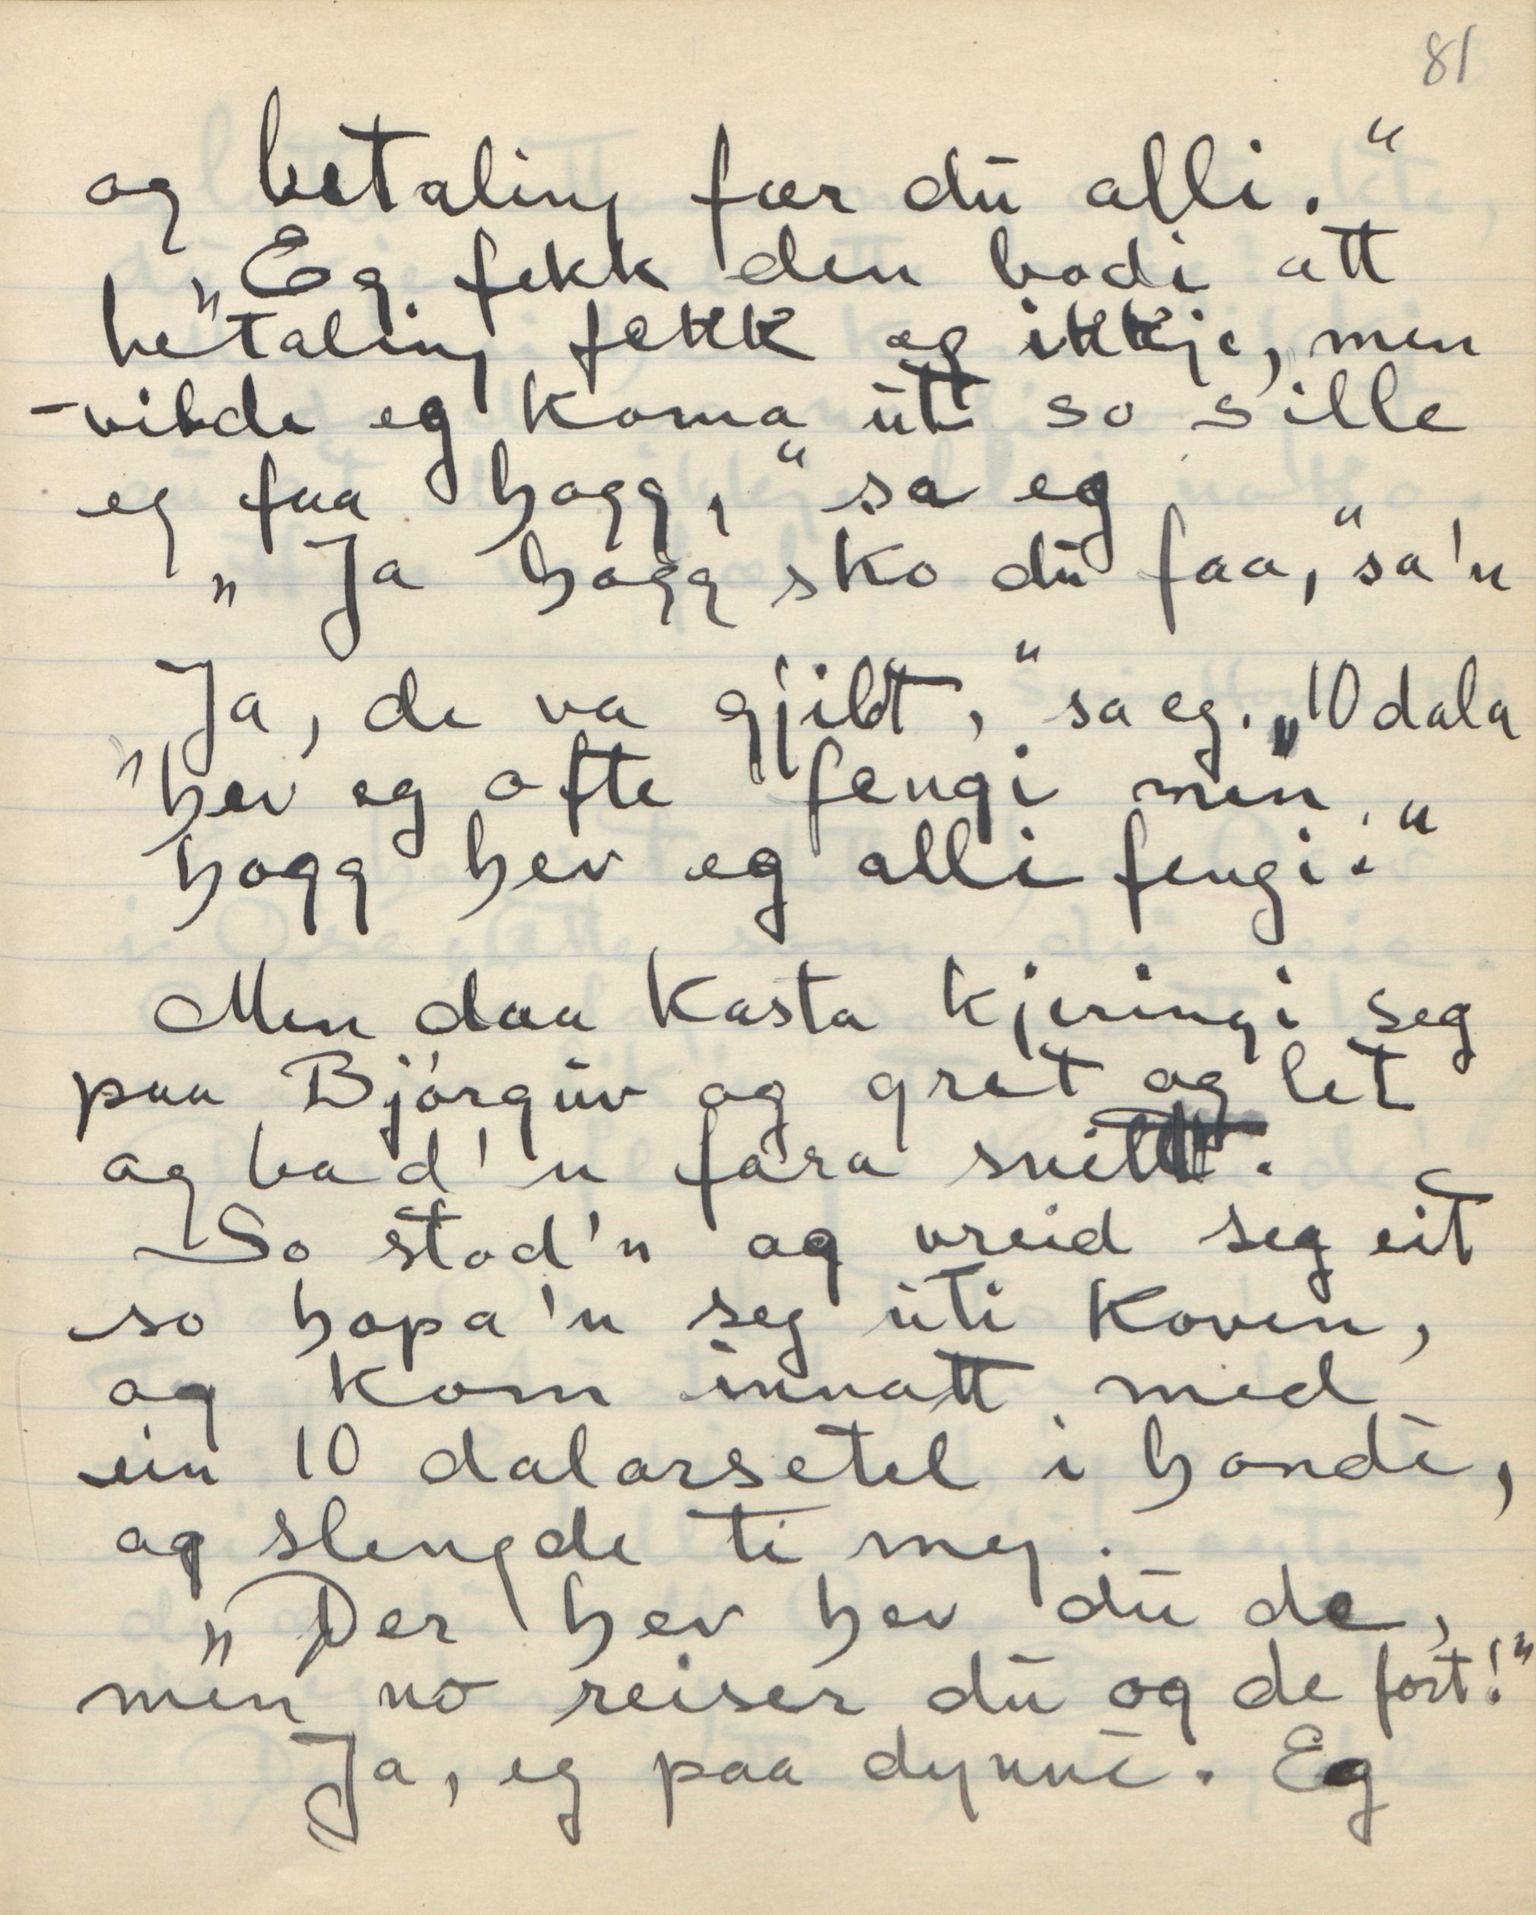 81
og betaling fær du alli."
"Eg fekk den bodi att
betaling fekk eg ikkje, men
vilde eg koma uti so sille
eg faa hogg," sa eg
"Ja hogg sko du faa," sa'n
"Ja, de va gjildt," sa eg. "10 dala
hev eg ofte fengi men
hogg hev eg alli fengi."
Men daa kasta kjeringi seg
paa Bjørguv og gret og let
og bad'n fara snildt.
So stod'n og vreid seg eit
so hopa'n seg uti koven,
og kom innatt med
ein 10 dalarsetel i hondi,
og slengde ti meg.
"Der hev hev du de,
men no reiser du og de fort!"
Ja, eg paa dynni. Eg